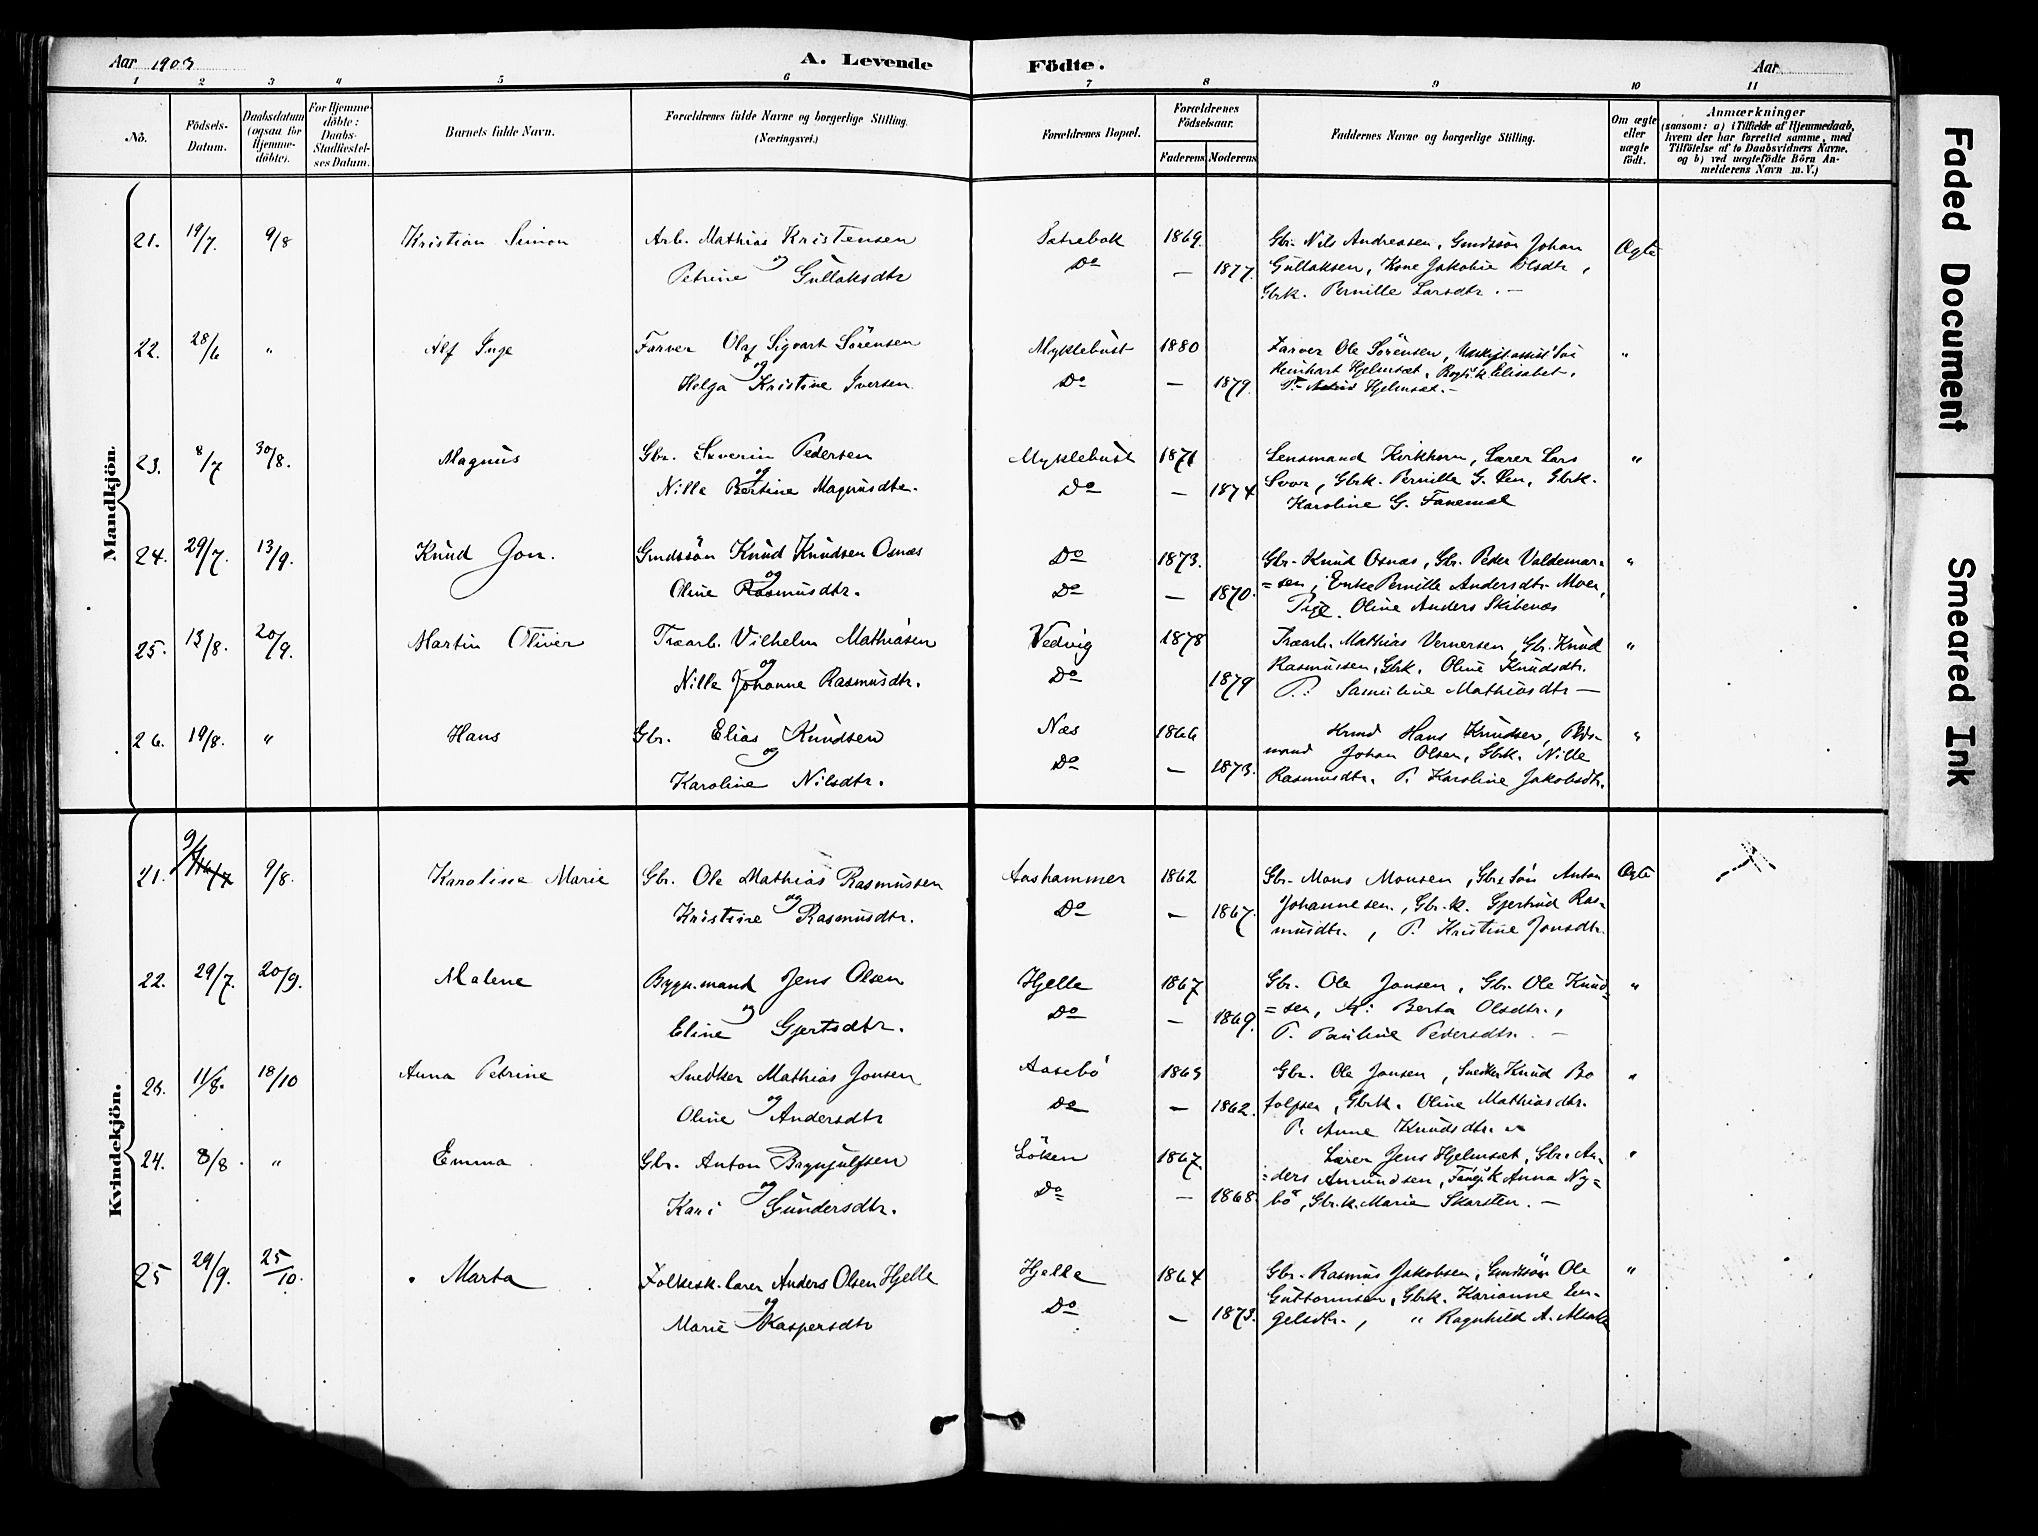 Aar 1903
A. Levende Födte.
Aar
1 2 3 4 5 6 7 8 9 10 11
No.
Födsels-Datum.
Daabsdatum (ogsaa for Hjemmedöbte).
For Hjemmedöbte: Daabs-Stadfæstelses Datum.
Barnets fulde Navn.
Forældrenes fulde Navne og borgerlige Stilling. (Næringsvei.)
Forældrenes Bopæl.
Forældrenes Födselsaar.
Faderens Moderens
Faddernes Navne og borgerlige Stilling.
Om ægte eller uægte födt.
Anmærkninger
(saasom: a) i Tilfælde af Hjemmedaab, hvem der har forrettet samme, med Tilföielse af to Daabsvidners Navne. og b) ved uægtefödte Börn Anmelderens Navn m. V.)
Mandkjön.
21. 19/7. 9/8 Kristian Simon Arb. Mathias Kristensen Sætrebak 1869. Gbr. Nils Andreasen, Gmdssön Johan Ægte
og Petrine Gullaksdtr Do — 1877. Gullaksen, Kone Jakobie Olsdtr,
Gbrk. Pernille Larsdtr. —
22. 28/6 " Alf Inge Farver Olaf Sigvart Sörensen Myklebust 1880 Farver Ole Sörensen, "
og Helga Kristine Iversen Do — 1879. Reinhart Hjelmset, Elisabet,
Hjelmset. —
23. 8/7 30/8. Magnus Gbr. Severin Pedersen Myklebust 1871 Lensmand Kirkhorn, Lærer Lars "
og Nille Bertine Magnusdtr. Do — 1874 Svor, Gbrk. Pernille G. Gbrk.
Karoline G. Fanemel
24. 29/7. 13/9. Knud Jon. Gmdssön Knud Knudsen Osnæs Do 1873. Gbr. Knud Osnæs, Gbr. Peder Valdemar= "
og Oline Rasmusdtr. Do — 1870. =sen, Enke Pernille Andersdtr. Moer,
Pige Oline Anders Skibenæs
25. 13/8. 20/9. Martin Oliver Træarb. Vilhelm Mathiasen Vedvig 1878 Træarb. Mathias Vernersen, Gbr. Knud "
og Nille Johanne Rasmusdtr. Do 1879 Rasmussen, Gbrk. Oline Knudsdtr.
P. Samuline Mathiasdtr —
26. 19/8. " Hans Gbr. Elias Knudsen Næs 1866 Hans Knudsen, "
og Karoline Nilsdtr. Do — 1873. mand Johan Olsen, Gbrk. Nille
Rasmusdtr. P. Karoline Jakobsdtr.
Kvindekjön.
21. 9/8. Karoline Marie Gbr. Ole Mathias Rasmussen Aashammer 1862 Gbr. Mons Monsen, Gbr. Sön Anton Ægte
og Kristine Rasmusdtr. Do — 1867. Johannesen., Gbr.k. Gjertrud Ras-
musdtr. , P. Kristine Jonsdtr.
22. 29/7. 20/9. Malene Bygn.mand Jens Olsen Hjelle 1867 Gbr. Ole Jonsen, Gbr. Ole Knud= "
og Eline Gjertsdtr. Do — 1869. =sen, Berta Olsdtr.,
P. Pauline Pedersdtr. —
23. 11/8. 18/10 Anna Petrine Snedker Mathias Jonsen Aasebö 1865 Gbr. Ole Jonsen, Snedker Knud Bo "
og Oline Andersdtr Do — 1862. tolfsen, Gbrk. Oline Mathiasdtr.
P. Anne Knudsdtr.
24. 8/8. " Emma Gbr. Anton Brynjulfsen Löken 1867. Lærer Jens Hjelmset, Gbr. An- "
og Kari Gundersdtr. Do — 1868. =ders Amundsen, Anna Ny=
bö, Gbr.k. Marie Skorsten. —
25 29/9. 25/10. Marta Folkesk. lærer Anders Olsen Hjelle Hjelle 1864 Gbr. Rasmus Jakobsen, Gmdssön Ole "
og Marie Kaspersdtr Do — 1873. Guttormsen, Gbrk. Karianne En-
gelsdtr., " Ragnhild A.
Faded Document
Smeared Ink